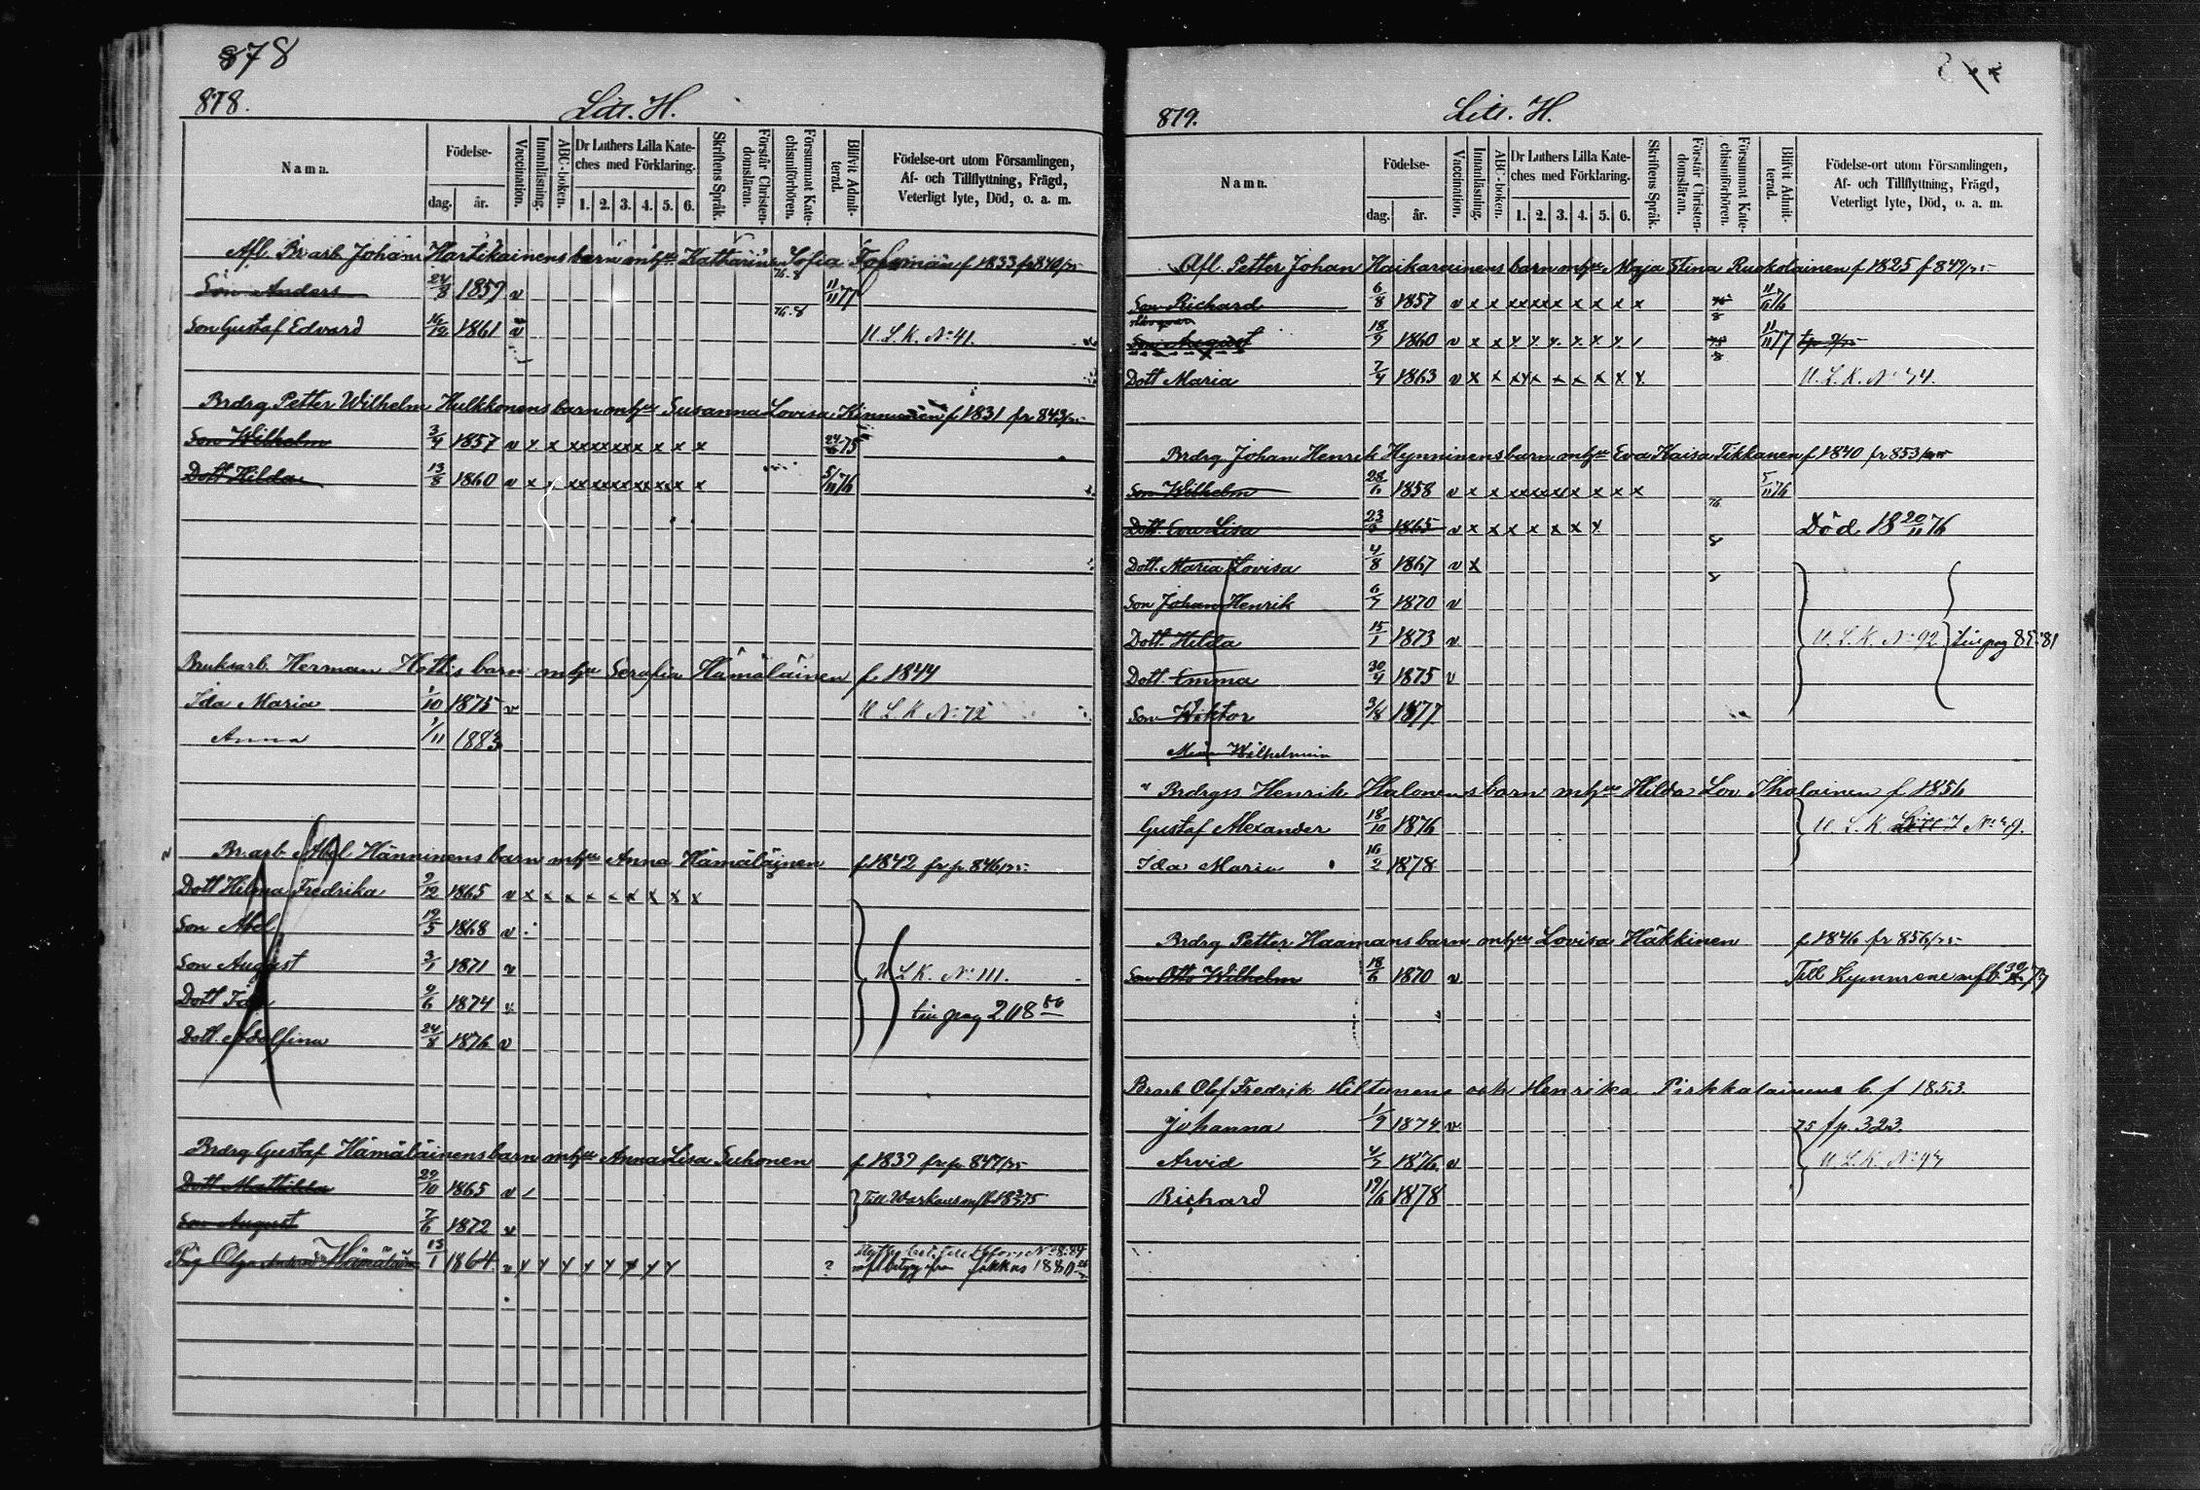 878
878.
Litt. H.
Namn.
Födelse-
dag. år.
Vaccination.
Innanläsning.
ABC-boken.
Dr Luthers Lilla Kateches med Förklaring.
1. 2. 3. 4. 5. 6.
Skriftens Språk.
Förstår Christendomsläran.
Försummat Katechismiförhören.
Blifvit Admitterad.
Födelse-ort utom Församlingen,
Af- och Tillflyttning, Frägd,
Veterligt lyte, Död, o. a. m.
Afl. Br arb Johan Hartikainens barn m hu Katharina Sofia f 1833 fr 840/75
Son Anders 24/8 1859 v 76.8 11/11 77
Son Gustaf Edvard 16/12 1861 v 76.8 U. L. K. No: 41.
Brdrg Petter Wilhelm Hulkkonens barn m hu Susanna Lovisa Kinnunen f 1831 fr 843/75
Son Wilhelm 3/4 1857 v x x x x x x x x x x x 24/6 75
Dott Hilda 13/8 1860 v x x x x x x x x x x x 5/11 76
Bruksarb. Herman Hottis barn m hu Serafia Hämäläinen f. 1844
Ida Maria 1/10 1875 v U L K No 72
Anna 1/11 1883
Br arb Abel Hänninens barn m hu Anna Hämäläinen f 1842 fr p 846/75
Dott Hilma Fredrika 9/12 1865 v x x x x x x x x x
Son Abel 19/5 1868 v
Son August 3/1 1871 v U L K. No 111.
Dott Ida 9/6 1874 v tin pag 208 86
Dott. Adolfina 24/8 1876 v
Brdrg Gustaf Hämäläinens barn m hu Anna Lisa Suhonen f 1839 fr p 847/75
Dott Mathilda 29/10 1865 v / Till Warkaus m fb 18 75
Son August 7/6 1872 v
Pig Olga Hämäläinen 15/1 1864 v x x x x x x x x ?
Jokkas
879.
Litt. H.
Namn.
Födelse-
dag. år.
Vaccination.
Innanläsning.
ABC-boken.
Dr Luthers Lilla Kateches med Förklaring.
1. 2. 3. 4. 5. 6.
Skriftens Språk.
Förstår Christendomsläran.
Försummat Katechismiförhören.
Blifvit Admitterad.
Födelse-ort utom Församlingen,
Af- och Tillflyttning, Frägd,
Veterligt lyte, Död, o. a. m.
Afl. Petter Johan Haikarainens barn m hu Maja Stina Ruokolainen f 1825 f 849/75
Son Richard 6/8 1857 v x x x x x x x x x x 11/6 76
Son August 18/9 1860 v x x x x x x x x / 11/11 77
Dott Maria 7/4 1863 v x x x x x x x x x x U. L. K. No 44.
Brdrg Johan Henrik Hynninens barn m hu Eva Kaisa Tikkanen f 1840 fr 853/75
Son Wilhelm 28/6 1858 v x x x x x x x x x x 5/11 76
Dott. Eva Lisa 23 1865 v x x x x x x x Död 18 20/11 76
Dott. Maria Lovisa 4/8 1867 v x
Son Johan Henrik 6/7 1870 v
Dott. Hilda 15/1 1873 v U. L. K. No 92
Dott. Emma 30/4 1875 v
Son Wiktor 3/8 1877
Wilhelmina
Brdrgss Henrik Halonens barn m hu Hilda Lov Ihalainen f 1856
Gustaf Alexander 18/10 1876 U. L. K Litt I No 49.
Ida Maria 16/2 1878
Brdrg Petter Haamans barn m hu Lovisa Häkkinen f 1846 fr 856/75
Son Otto Wilhelm 18/6 1870 v
Br arb Olof Fredrik Hiltunens och Henrika Pirkkalainens b. f 1853.
Johanna 1/9 1874 v 75 f p. 323.
Arvid 4/7 1876 v U. L. K. No 94
Richard 19/6 1878